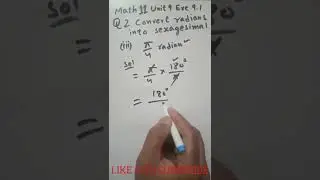 Math 11 Unit 9 Exe 9.1
Q 2 Convert radians
into sexagesimal
(iii) π/4 radian
Sol
= π/4 × 180°/π
= 180°
LIKE